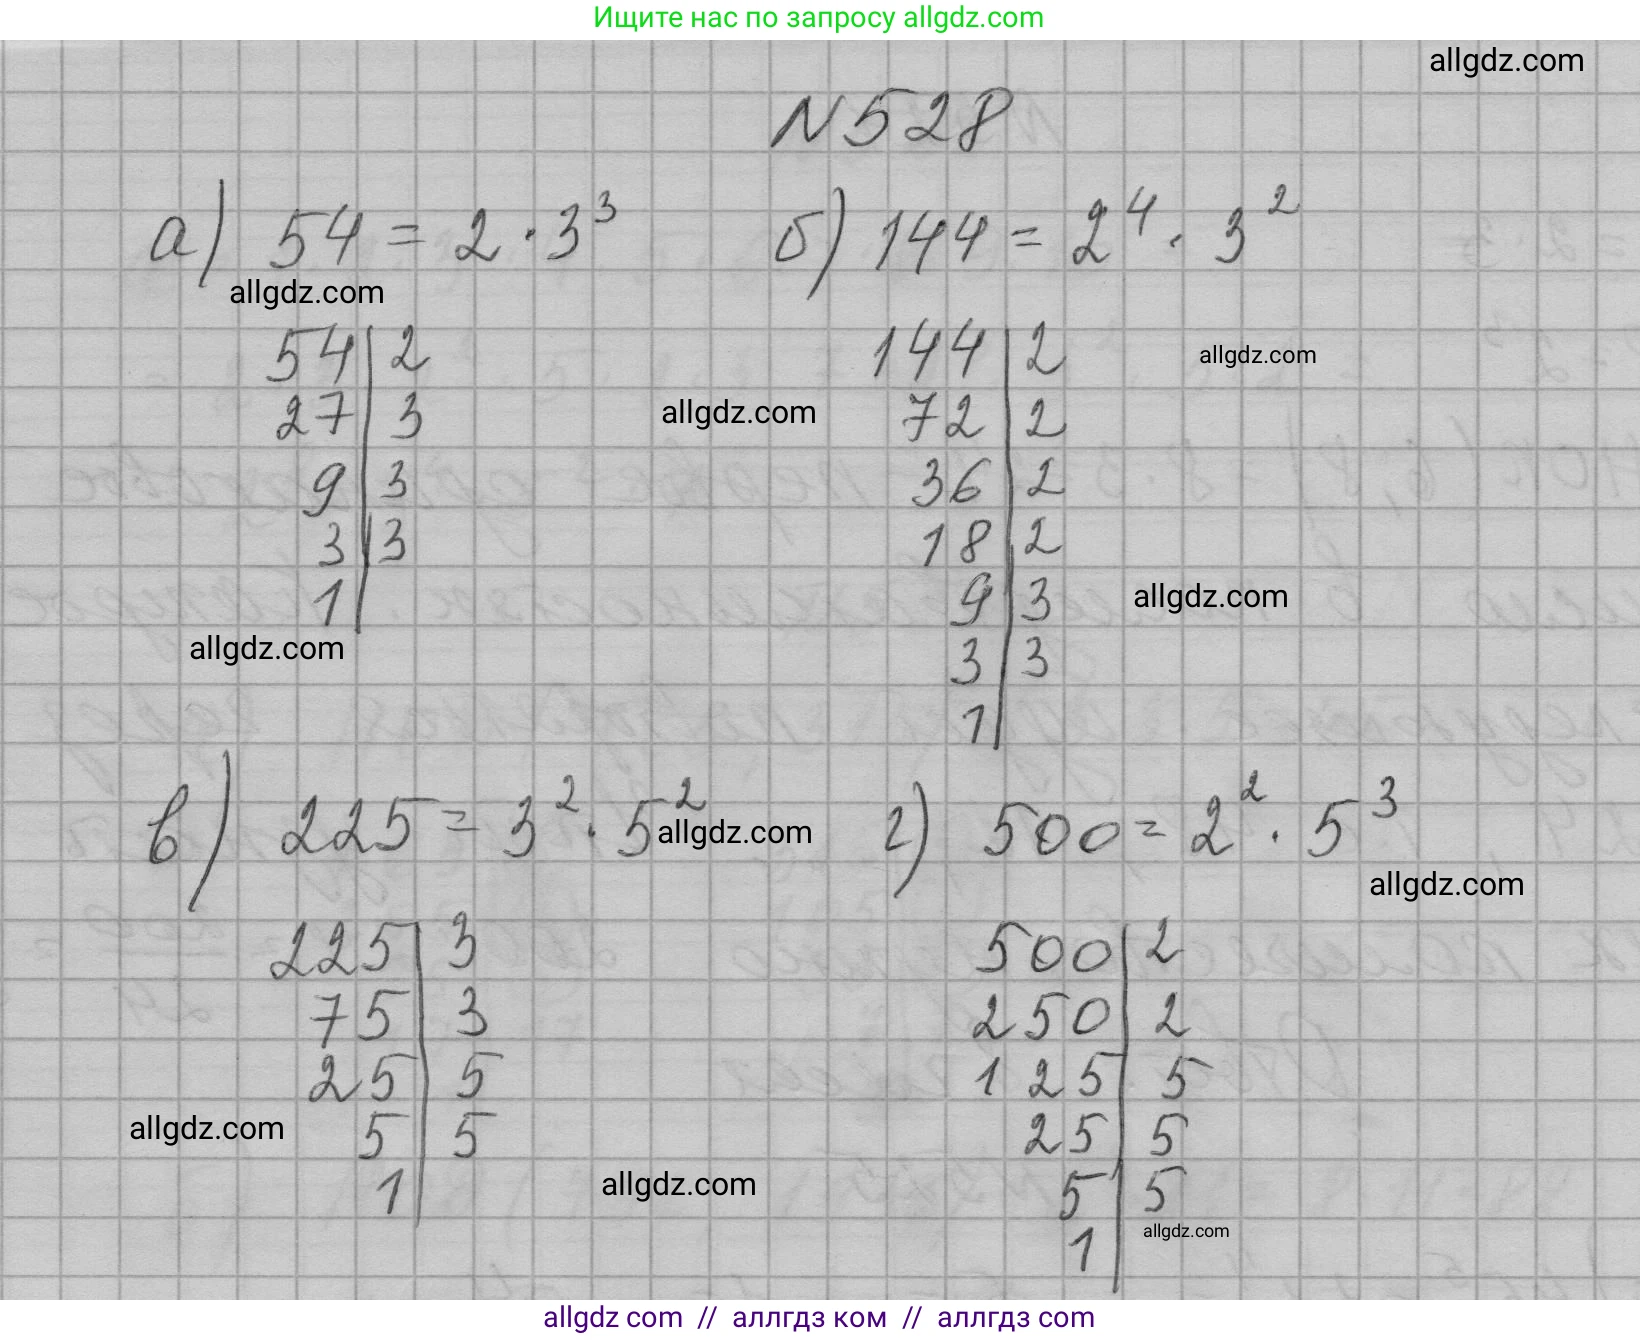 Ищите нас по запросу allgdz.com
allgdz.com
N 528
а) 54 = 2 · 3³
б) 144 = 2⁴ · 3²
allgdz.com
54 | 2
27 | 3
9 | 3
3 | 3
1
allgdz.com
144 | 2
72 | 2
36 | 2
18 | 2
9 | 3
3 | 3
1
allgdz.com
allgdz.com
allgdz.com
в) 225 = 3² · 5²
allgdz.com
г) 500 = 2² · 5³
allgdz.com
225 | 3
75 | 3
25 | 5
5 | 5
1
allgdz.com
allgdz.com
500 | 2
250 | 2
125 | 5
25 | 5
5 | 5
1
allgdz.com
allgdz com // аллгдз ком // аллгдз.com